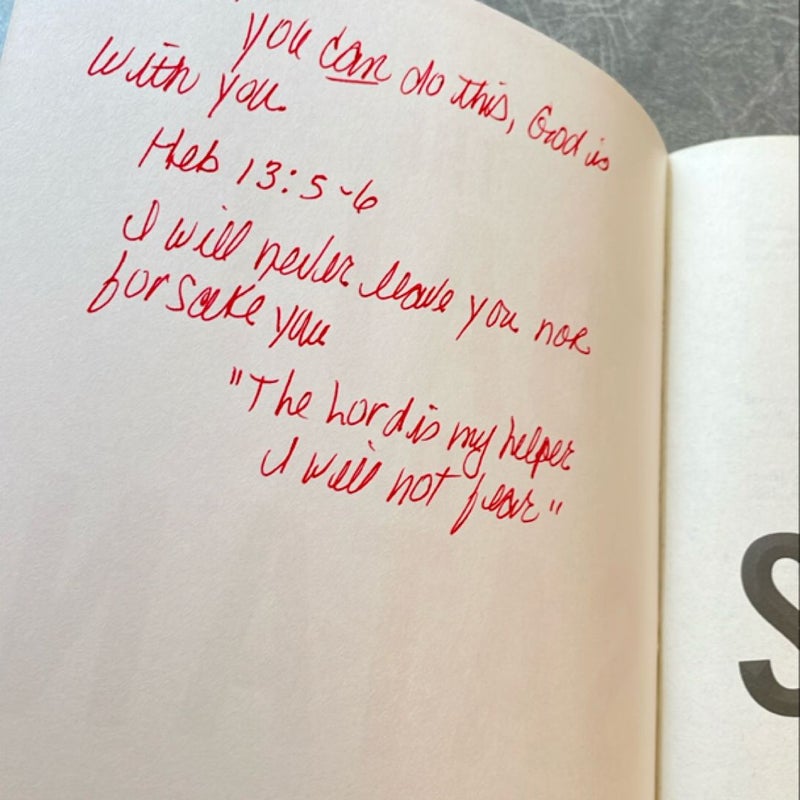 you can do this, God is
with you
Heb 13:5-6
I will never leave you nor
forsake you
"The Lord is my helper
I will not fear"
S